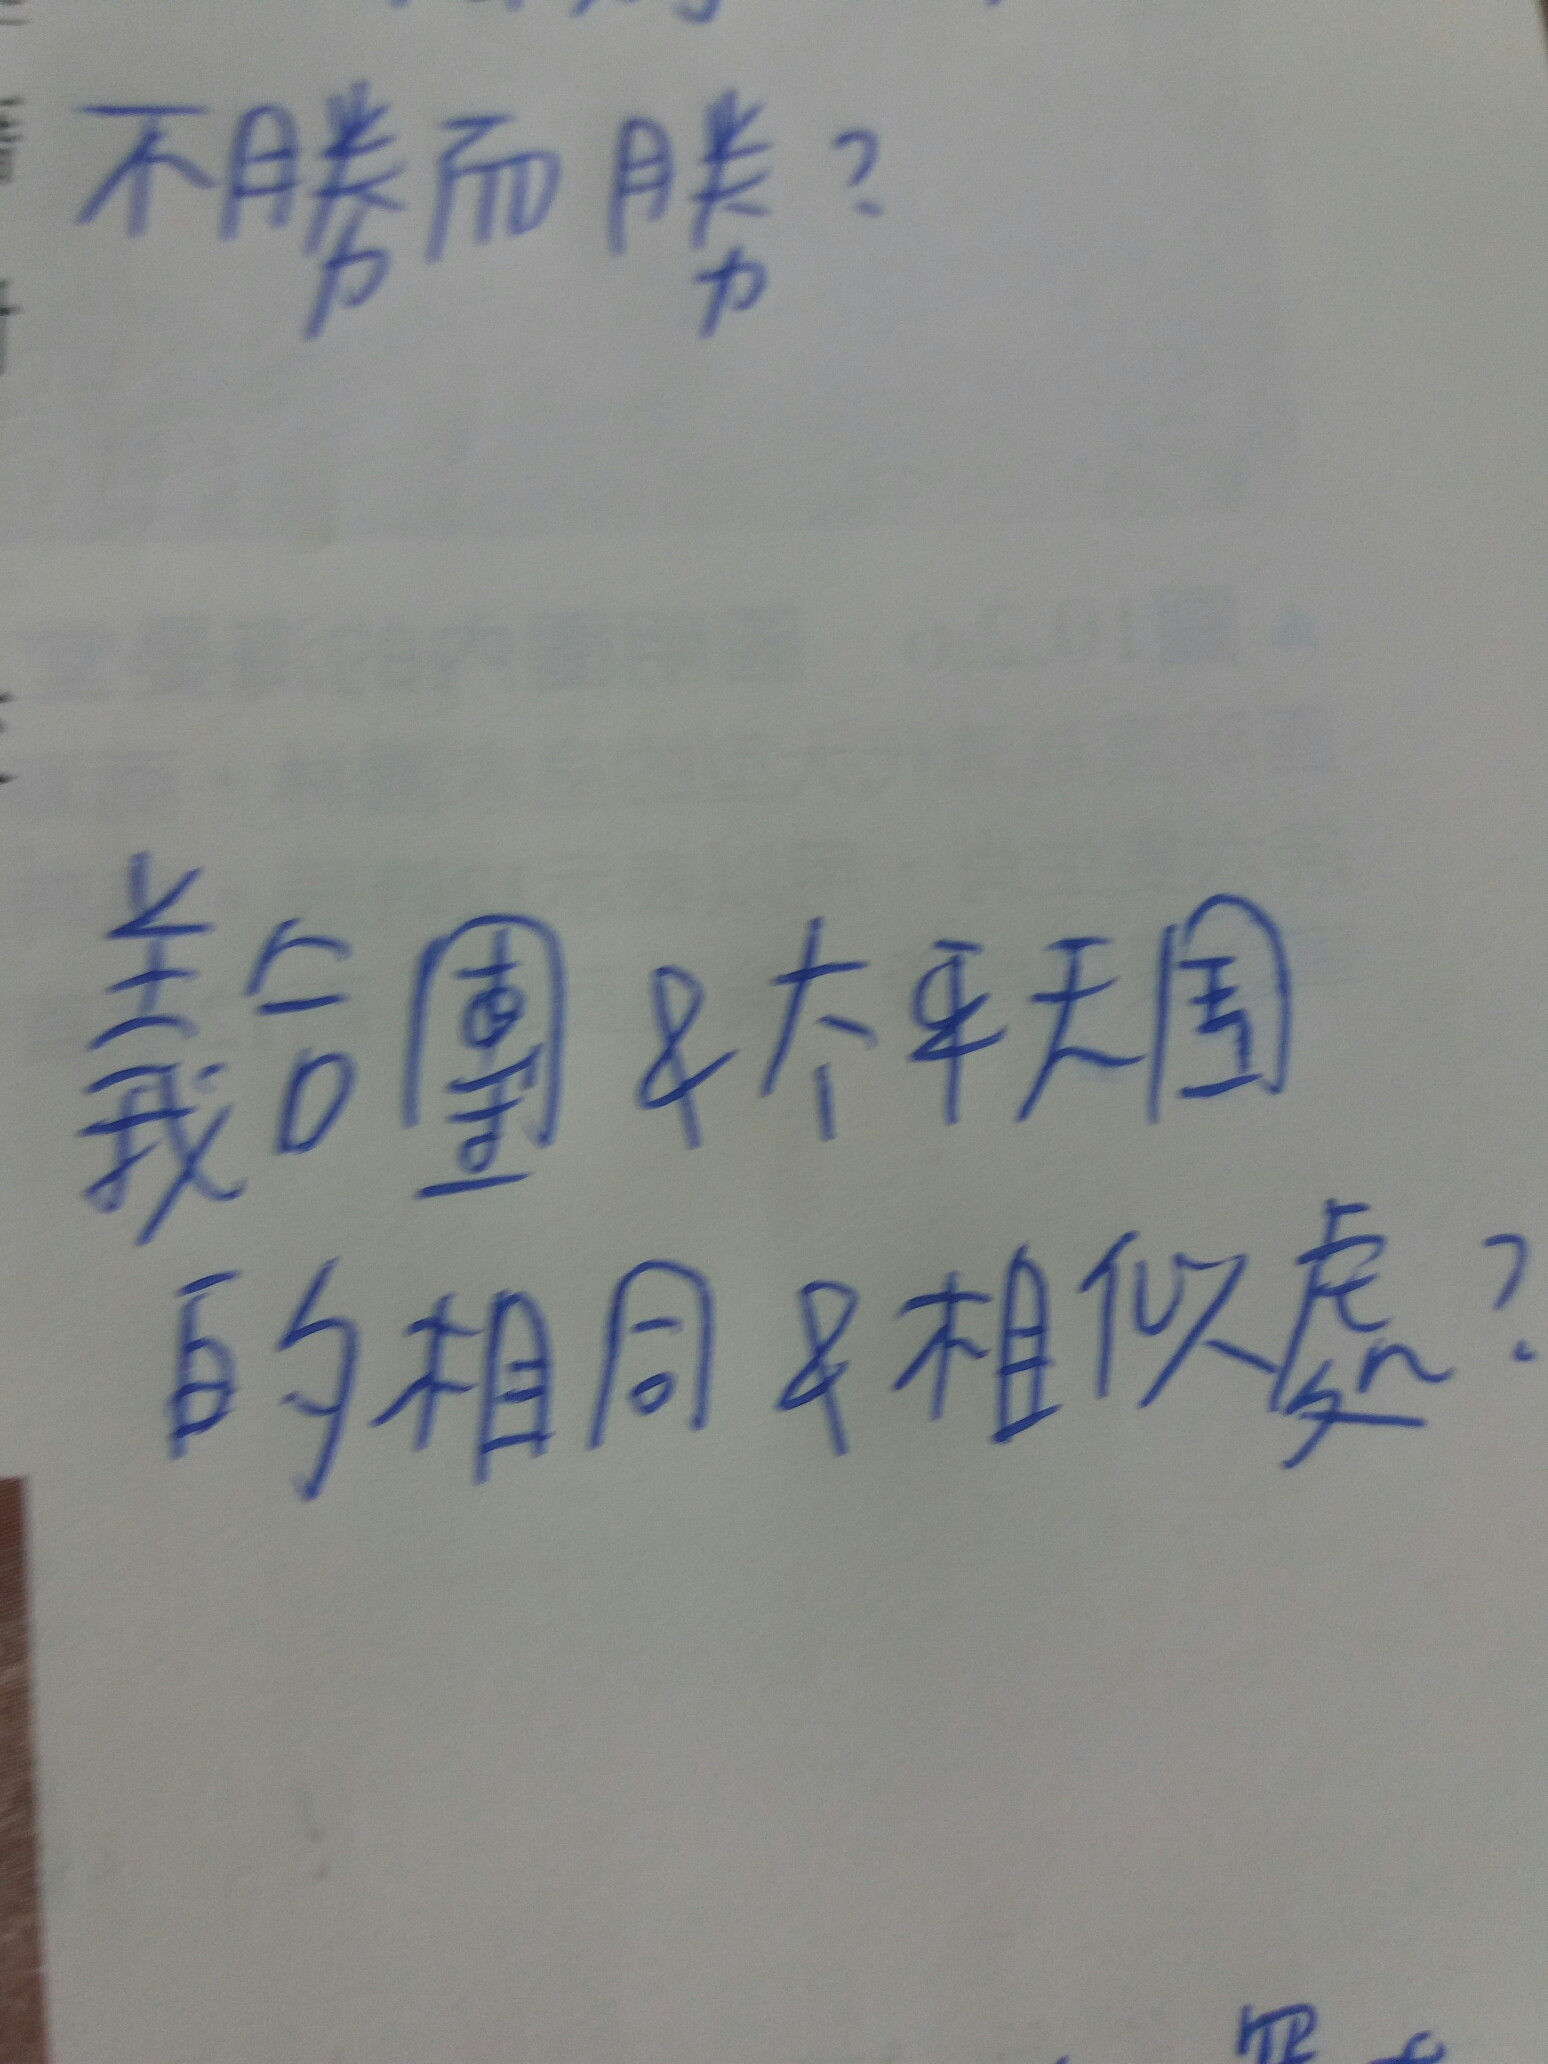 不勝而勝?
義合團&太平天国
的相同&相似處?